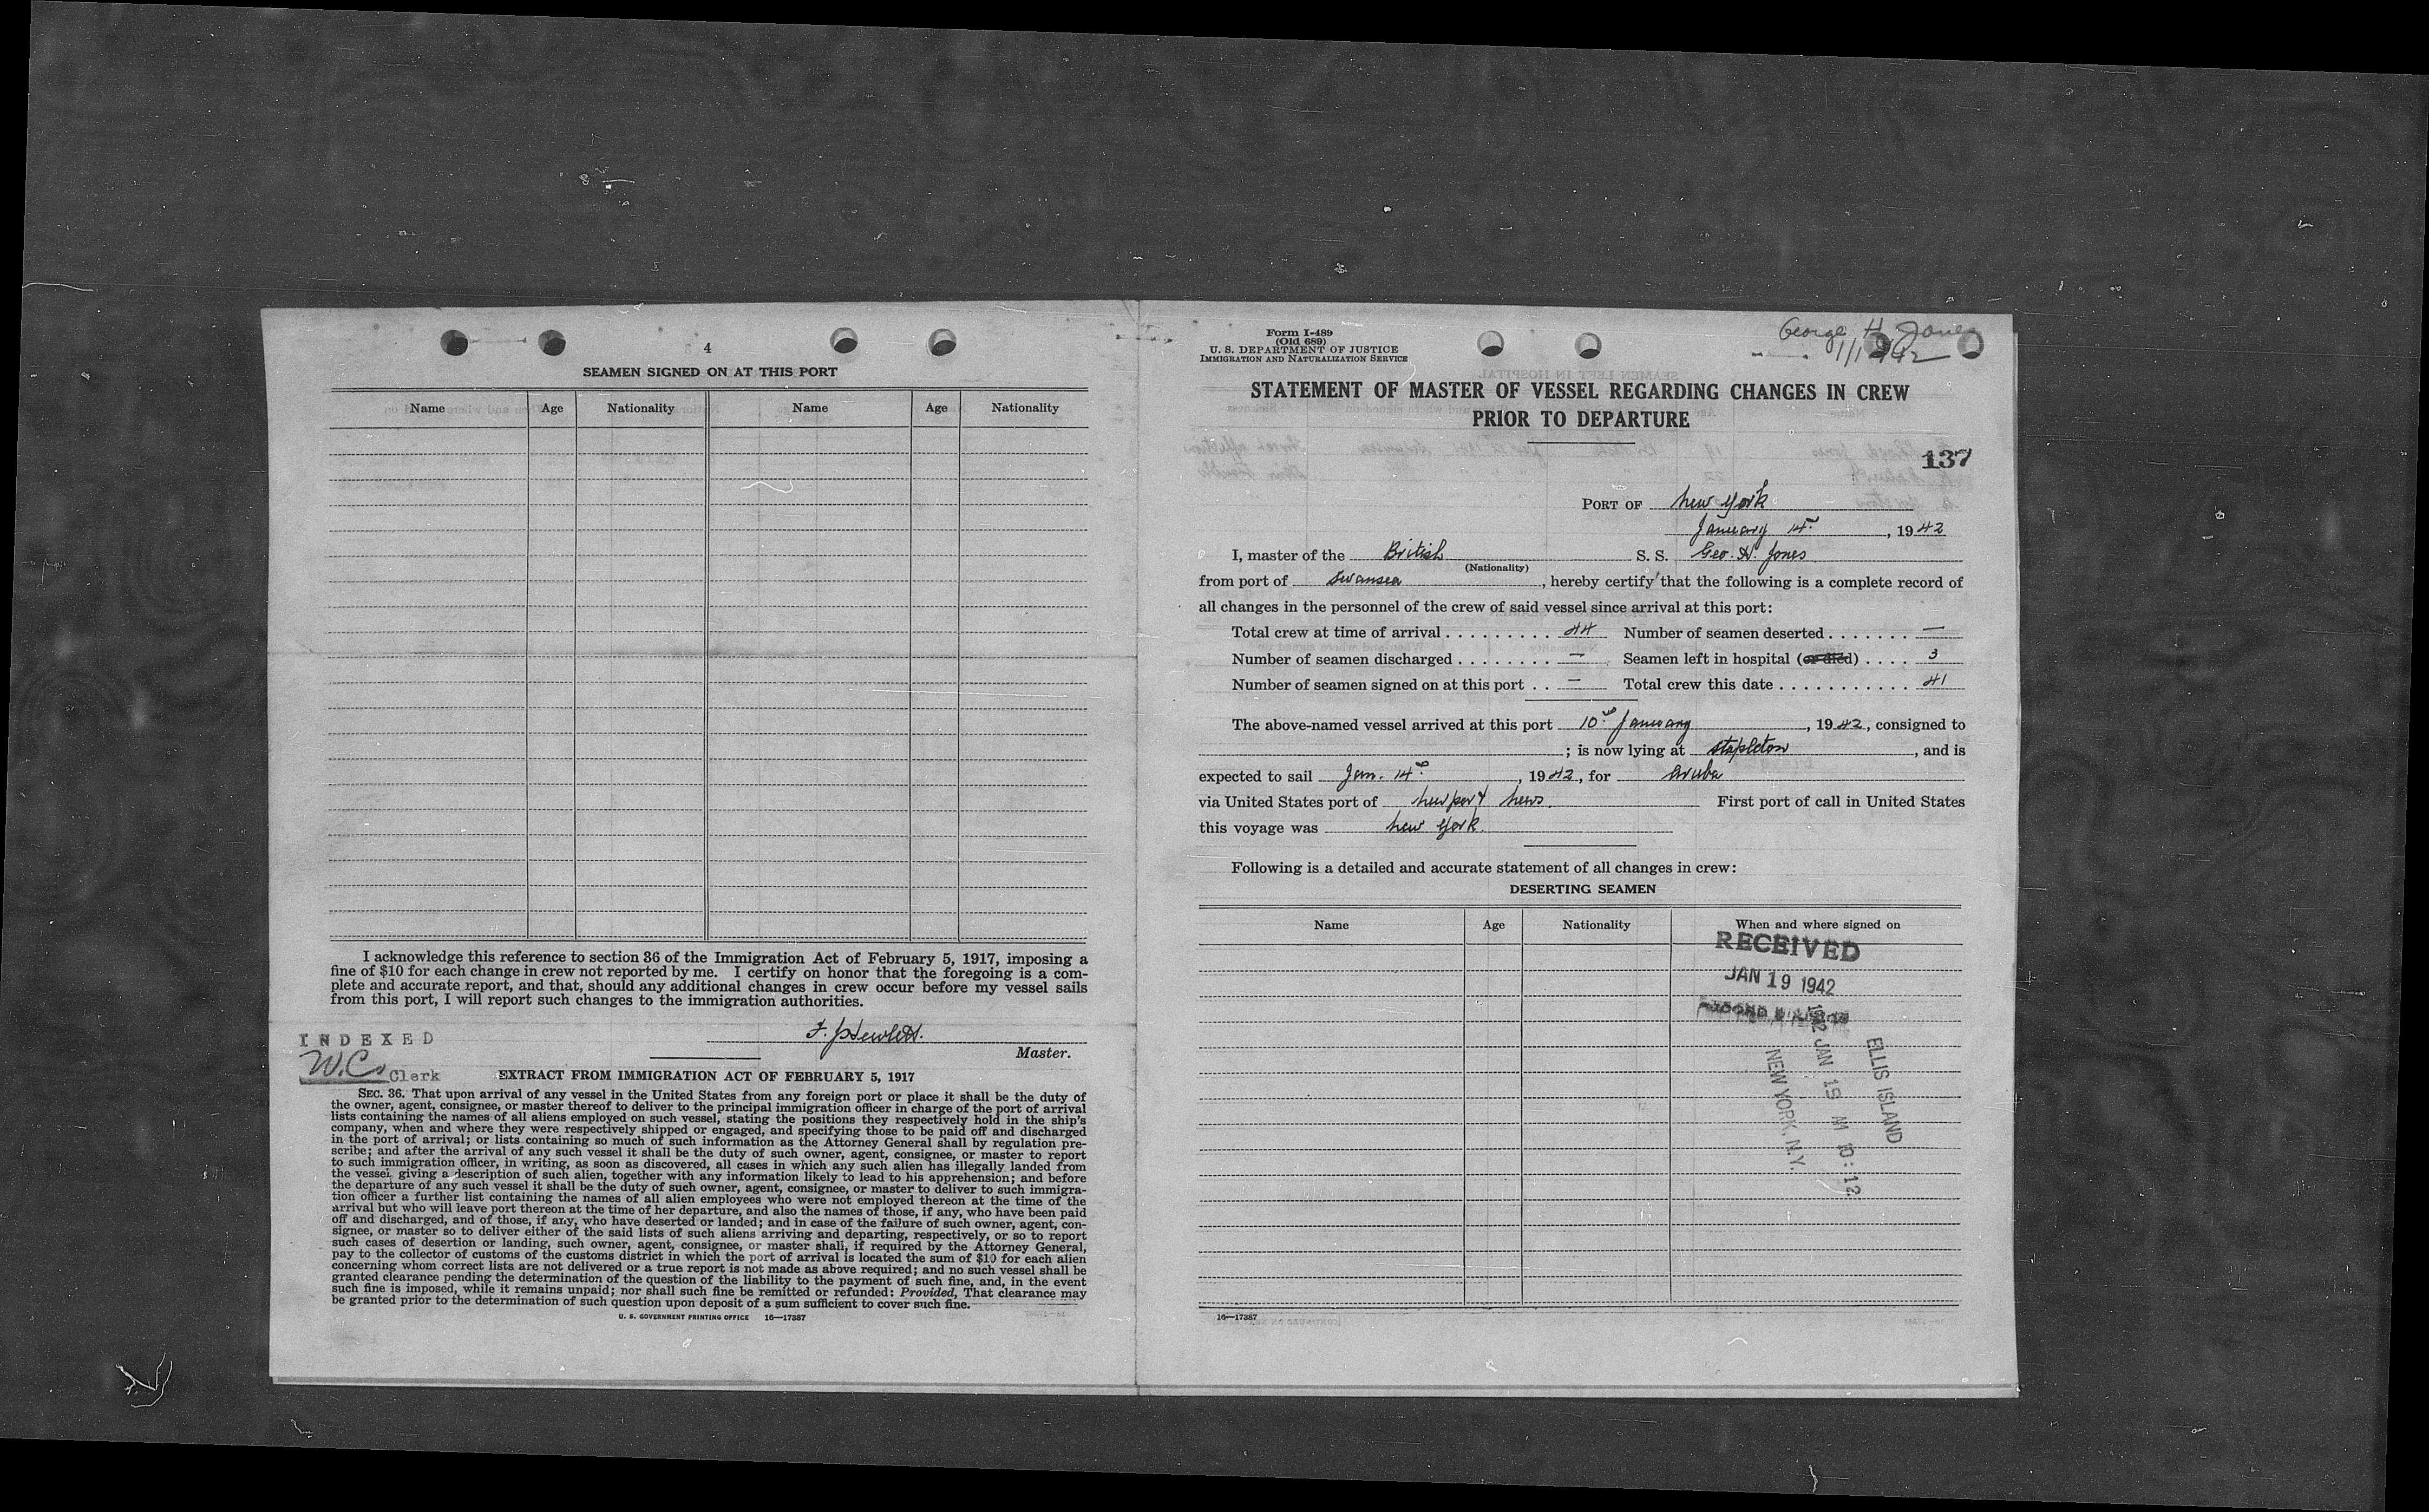 4
SEAMEN SIGNED ON AT THIS PORT
Name Age Nationality Name Age Nationality
I acknowledge this reference to section 36 of the Immigration Act of February 5, 1917, imposing a
fine of $10 for each change in crew not reported by me. I certify on honor that the foregoing is a com-
plete and accurate report, and that, should any additional changes in crew occur before my vessel sails
from this port, I will report such changes to the immigration authorities.
INDEXED
W.C. Clerk
F. J. Hewlett.
Master.
EXTRACT FROM IMMIGRATION ACT OF FEBRUARY 5, 1917
SEC. 36. That upon arrival of any vessel in the United States from any foreign port or place it shall be the duty of
the owner, agent, consignee, or master thereof to deliver to the principal immigration officer in charge of the port of arrival
lists containing the names of all aliens employed on such vessel, stating the positions they respectively hold in the ship's
company, when and where they were respectively shipped or engaged, and specifying those to be paid off and discharged
in the port of arrival; or lists containing so much of such information as the Attorney General shall by regulation pre-
scribe; and after the arrival of any such vessel it shall be the duty of such owner, agent, consignee, or master to report
to such immigration officer, in writing, as soon as discovered, all cases in which any such alien has illegally landed from
the vessel, giving a description of such alien, together with any information likely to lead to his apprehension; and before
the departure of any such vessel it shall be the duty of such owner, agent, consignee, or master to deliver to such immigra-
tion officer a further list containing the names of all alien employees who were not employed thereon at the time of the
arrival but who will leave port thereon at the time of her departure, and also the names of those, if any, who have been paid
off and discharged, and of those, if any, who have deserted or landed; and in case of the failure of such owner, agent, con-
signee, or master so to deliver either of the said lists of such aliens arriving and departing, respectively, or so to report
such cases of desertion or landing, such owner, agent, consignee, or master shall, if required by the Attorney General,
pay to the collector of customs of the customs district in which the port of arrival is located the sum of $10 for each alien
concerning whom correct lists are not delivered or a true report is not made as above required; and no such vessel shall be
granted clearance pending the determination of the question of the liability to the payment of such fine, and, in the event
such fine is imposed, while it remains unpaid; nor shall such fine be remitted or refunded: Provided, That clearance may
be granted prior to the determination of such question upon deposit of a sum sufficient to cover such fine.
U. S. GOVERNMENT PRINTING OFFICE 16—17387
Form I-489
(Old 689)
U. S. DEPARTMENT OF JUSTICE
IMMIGRATION AND NATURALIZATION SERVICE
George H Jones
STATEMENT OF MASTER OF VESSEL REGARDING CHANGES IN CREW
PRIOR TO DEPARTURE
137
PORT OF New York
January 14th, 1942
I, master of the British S. S. Geo. H. Jones
(Nationality)
from port of Swansea, hereby certify that the following is a complete record of
all changes in the personnel of the crew of said vessel since arrival at this port:
Total crew at time of arrival . . . . . . . . . 44 Number of seamen deserted . . . . . . . —
Number of seamen discharged . . . . . . . . — Seamen left in hospital (or died) . . . . 3
Number of seamen signed on at this port . . — Total crew this date . . . . . . . . . . . 41
The above-named vessel arrived at this port 10th January, 1942, consigned to
; is now lying at Stapleton, and is
expected to sail Jan. 14th, 1942, for Aruba
via United States port of Newport News. First port of call in United States
this voyage was New York.
Following is a detailed and accurate statement of all changes in crew:
DESERTING SEAMEN
Name Age Nationality When and where signed on
RECEIVED
JAN 19 1942
1942 JAN 19 AM 10:12
ELLIS ISLAND
NEW YORK, N.Y.
16—17387